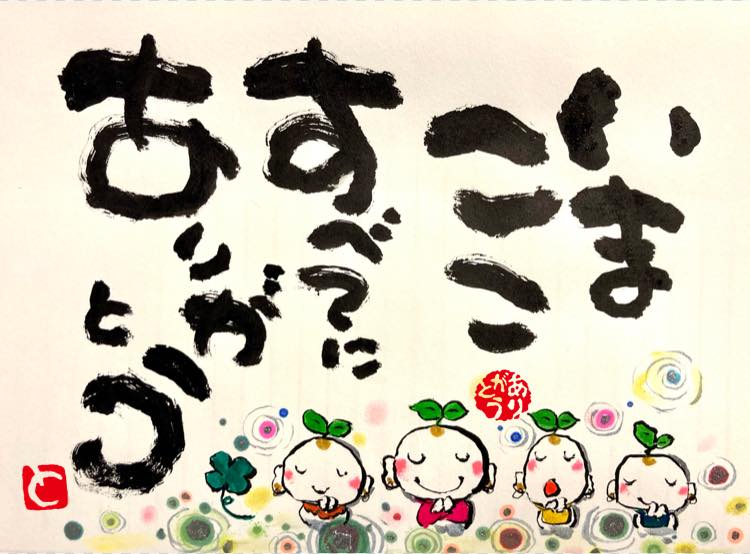 いま
ここ
すべてに
ありがとう
ありがとう
と